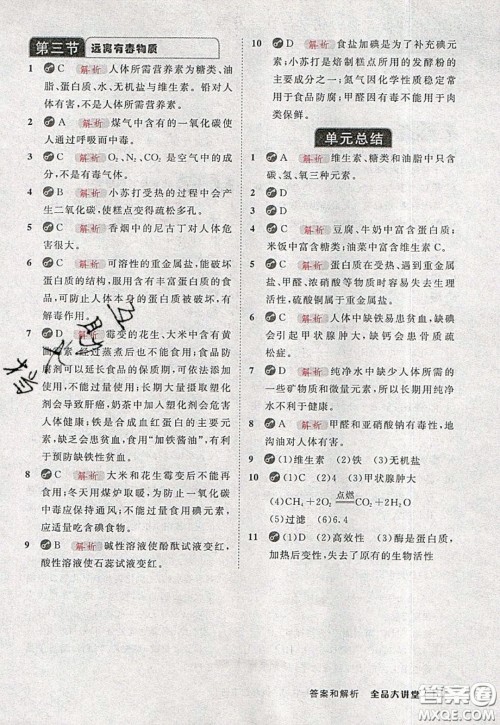 第三节 远离有毒物质
1 C 解析 人体所需营养素为糖类、油
脂、蛋白质、水、无机盐与维生素。铅对人
体有害,不是人体所需营养素。
2 A 解析 煤气中含有的一氧化碳使
人通过呼吸而中毒。
3 C 解析 O₂、N₂、CO₂是空气中的成
分,不是有毒气体。
4 B 解析 小苏打受热的过程中会产
生二氧化碳,使糕点变成疏松多孔。
5 A 解析 香烟中的尼古丁对人体危
害很大。
6 C 解析 可溶性的重金属盐,能破坏
蛋白质的结构,服用含有丰富蛋白质的食
品,可防止人体本身的蛋白质被破坏,有
解毒作用。
7 D 解析 霉变的花生、大米中含有黄
曲霉素,经过蒸煮后也不能食用;食品防
腐剂可以延长食品保质期,可依法添加
使用,不能禁止使用;长期大量摄取塑化
剂会导致肝癌,奶茶中添加塑化剂有害
人体健康;铁是合成血红蛋白的主要元
素,缺乏会患贫血,食用“加铁酱油”,有助
于预防缺铁性贫血。
8 C 解析 大米和花生霉变后不能再
食用;冬天用煤炉取暖,为防止一氧化碳
中毒,应打开门窗通风;不能食用碘单质,
应适量吃含碘食物。
9 B 解析 碱性溶液使酚酞试液变红,
酸性溶液使石蕊试液变红。
10 D 解析 食盐加碘是为了补充碘元
素;小苏打是焙制糕点所用的发酵粉的
主要成分之一;氮气因化学性质稳定常
用于食品防腐;甲醛因有毒不能用于肉
类保鲜。
单元总结
1 A 解析 维生素、糖类和油脂中只含
碳、氢、氧三种元素。
2 D
3 D
4 B 解析 豆腐、牛奶中富含蛋白质;
米饭中富含糖类;油菜中富含维生素C。
5 D 解析 蛋白质遇到重金属盐、甲
醛、浓硝酸等物质时容易发生变质失去
生理活性,硫酸铜属于重金属盐。
6 A 解析 人体缺铁会患缺铁性贫血,缺碘
会引起甲状腺肿大,缺钙会患骨质疏松
或佝偻病。
7 D 解析 纯净水中缺少人体所需的
一些矿物质和微量元素,所以长期喝纯净
水不利于健康。
8 A 解析 甲醛和亚硝酸钠有毒性,地
沟油对人体有害。
9 (1)维生素 (2)铁 (3)无机盐
10 (1)C (2)D (3)甲状腺肿大
(4)CH₄+2O₂ 点燃 CO₂+2H₂O
(5)过滤 (6)6.4
11 (1)D (2)高效性 (3)酶是蛋白质,
加热后变性,失去了原有的生物活性
答案和解析 全品大讲堂